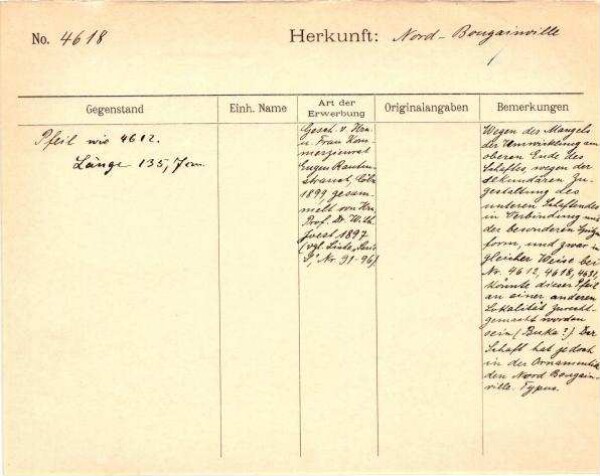 No. 4618
Herkunft: Nord-Bougainville
Gegenstand
Einh. Name
Art der Erwerbung
Originalangaben
Bemerkungen
Pfeil wie 4612.
Länge 135,7 cm
Gesch. v. Hrn
u. Frau Kom-
merzienrat
Eugen Rauten-
strauch, Cöln
1899, gesam-
melt von Hrn
Prof. Dr. Wilh.
Joest 1897
(vgl. Liste
P, Nr. 91-96)
Wegen des Mangels
der Umwicklung am
oberen Ende des
Schaftes, wegen der
sekundären Zu-
gestaltung des
unteren Schaftendes
in Verbindung mit
der besonderen
form, und zwar in
gleicher Weise bei
Nr. 4612, 4618, 4631,
könnte dieser Pfeil
an einer anderen
Lokalität zurecht-
gemacht worden
sein (Buka?) Der
Schaft hat jedoch
in der Ornamentik
den Nord Bougain-
ville-Typus.